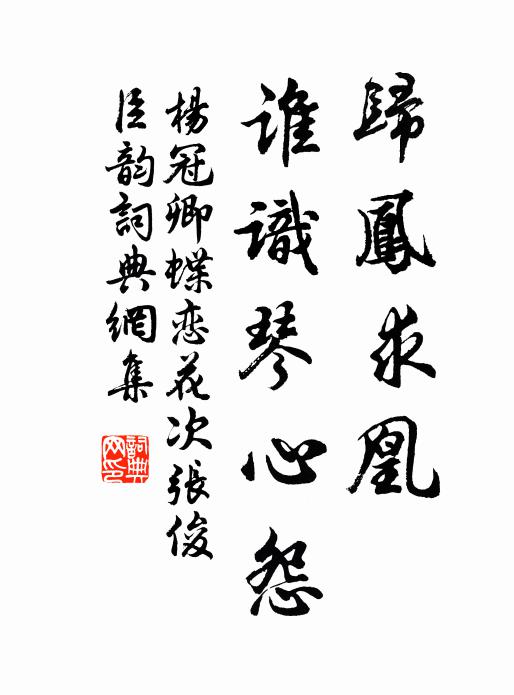 歸鳳求凰
誰識琴心怨
楊冠卿蝶恋花次張俊
臣韵詞典網集
詞典网印